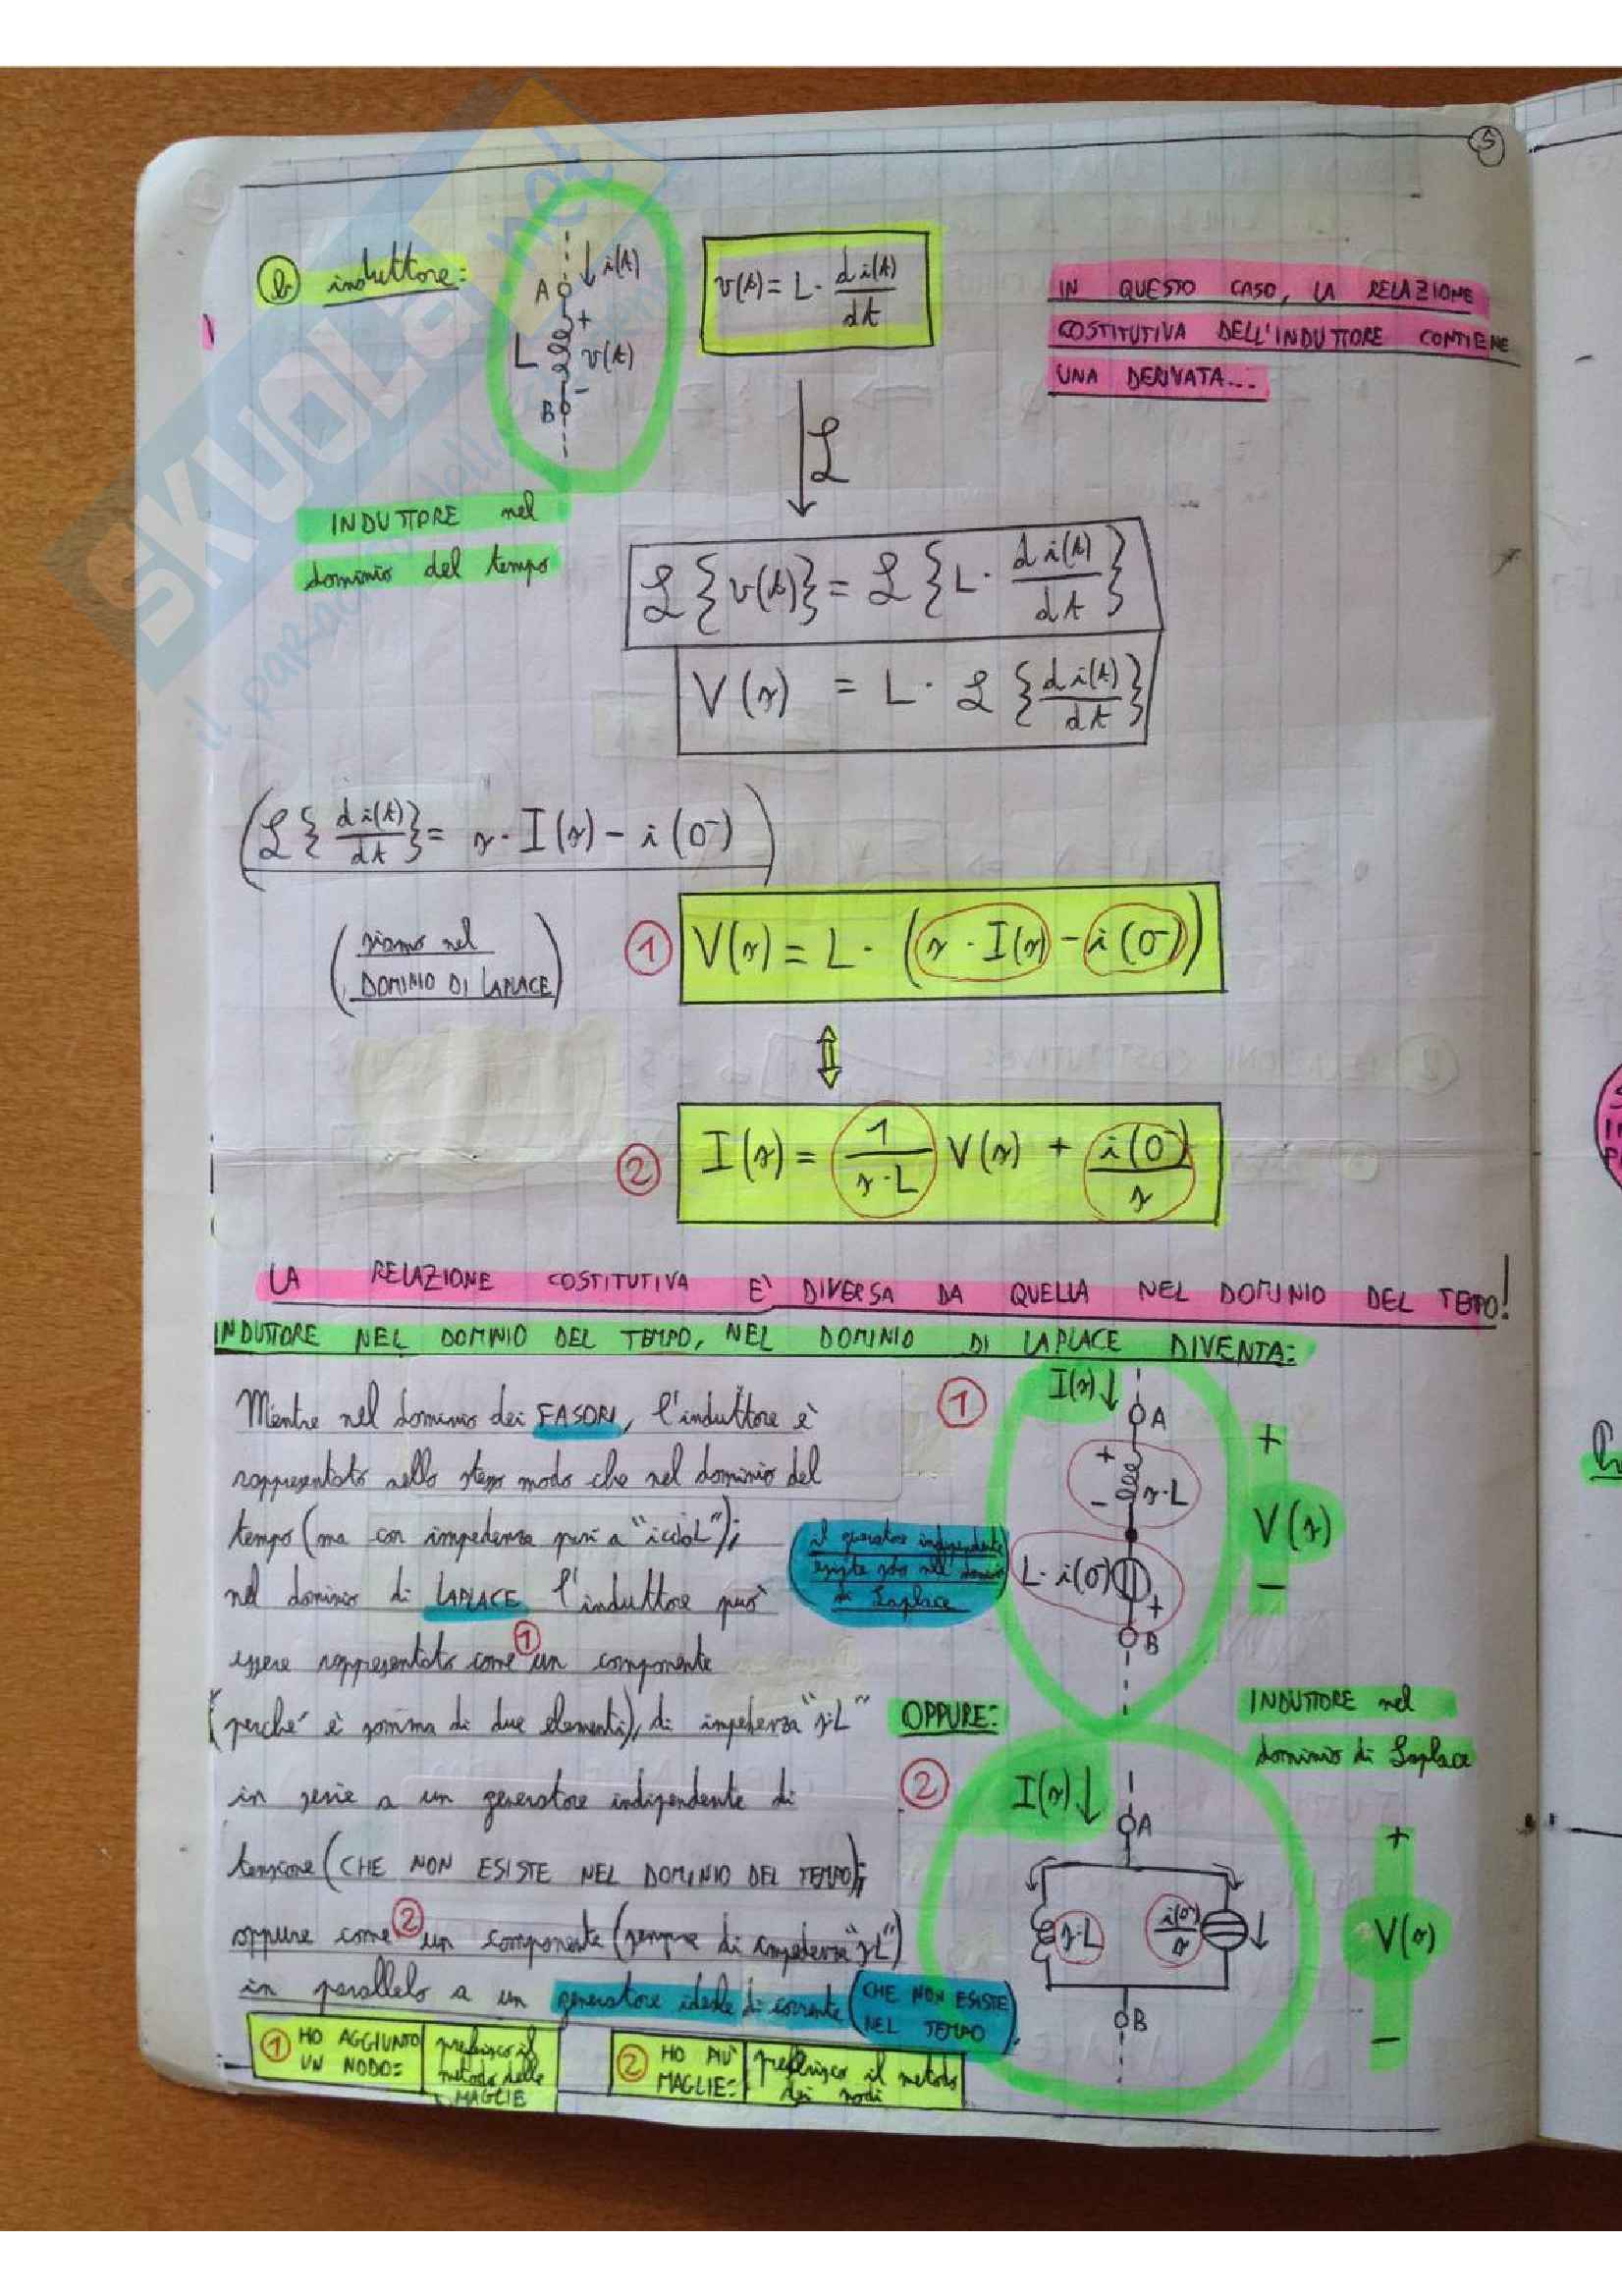 5
b induttore:
A
i(t)
+
L
v(t)
-
B
v(t) = L · d i(t) / dt
IN QUESTO CASO, LA RELAZIONE
COSTITUTIVA DELL'INDUTTORE CONTIENE
UNA DERIVATA...
ℒ
INDUTTORE nel
dominio del tempo
ℒ {v(t)} = ℒ {L · d i(t) / dt}
V(s) = L · ℒ {d i(t) / dt}
(ℒ { d i(t) / dt } = s · I(s) - i(0⁻))
(siamo nel
DOMINIO DI LAPLACE)
1 V(s) = L · (s · I(s) - i(0⁻))
2 I(s) = 1 / s·L V(s) + i(0⁻) / s
LA RELAZIONE COSTITUTIVA E' DIVERSA DA QUELLA NEL DOMINIO DEL TEMPO!
INDUTTORE NEL DOMINIO DEL TEMPO, NEL DOMINIO DI LAPLACE DIVENTA:
Mentre nel dominio dei FASORI, l'induttore è
rappresentato nello stesso modo che nel dominio del
tempo (ma con impedenza pari a "iωL");
nel dominio di LAPLACE l'induttore può
essere rappresentato come 1 un componente
(perché è somma di due elementi), di impedenza "s·L"
in serie a un generatore indipendente di
tensione (CHE NON ESISTE NEL DOMINIO DEL TEMPO);
oppure come 2 un componente (sempre di impedenza "s·L")
in parallelo a un generatore ideale di corrente (CHE NON ESISTE
NEL TEMPO).
il generatore indipendente
esiste solo nel dominio
di Laplace
1
I(s)
A
+
s·L
-
L·i(0⁻)
+
B
+
V(s)
-
OPPURE:
INDUTTORE nel
dominio di Laplace
2
I(s)
A
s·L
i(0⁻) / s
B
+
V(s)
-
1 HO AGGIUNTO
UN NODO:
preferisco il
metodo delle
MAGLIE
2 HO PIU'
MAGLIE:
preferisco il metodo
dei nodi
SKUOLA.net